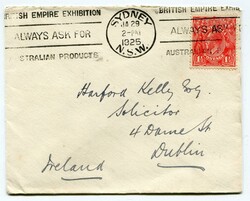 BRITISH EMPIRE EXHIBITION
SYDNEY
BRITISH EMPIRE EXHIB
ALWAYS ASK FOR
JA 29
2-PM
1925
ALWAYS ASK
AUSTRALIAN PRODUCTS
N.S.W.
AUSTRA
Harford Kelly Esq.
Solicitor
4 Dame St
Dublin
Ireland